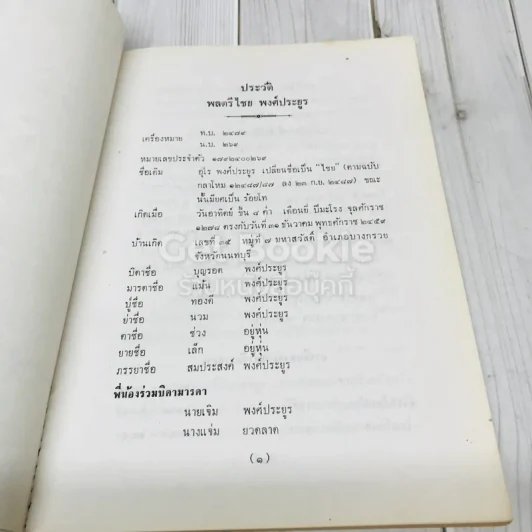 ประวัติ
พลตรีไชย พงศ์ประยูร
เครื่องหมาย ท.บ. ๒๔๗๙
น.บ. ๒๖๙
หมายเลขประจำตัว ๑๗๙๒๔๐๐๒๖๙
ชื่อเดิม อุไร พงศ์ประยูร เปลี่ยนชื่อเป็น "ไชย" (ตามฉบับ
กลาโหม ๑๒๔๘๗/๘๗ ลง ๒๓ ก.ย. ๒๔๘๗) ขณะ
นั้นมียศเป็น ร้อยโท
เกิดเมื่อ วันอาทิตย์ ขึ้น ๘ ค่ำ เดือนยี่ ปีมะโรง จุลศักราช
๑๒๗๘ ตรงกับวันที่ ๓๑ ธันวาคม พุทธศักราช ๒๔๕๙
บ้านเกิด เลขที่ ๓๕ หมู่ที่ ๗ มหาสวัสดิ์ อำเภอบางกรวย
จังหวัดนนทบุรี
บิดาชื่อ บุญรอด พงศ์ประยูร
มารดาชื่อ แม้น พงศ์ประยูร
ปู่ชื่อ ทองดี พงศ์ประยูร
ย่าชื่อ นวม พงศ์ประยูร
ตาชื่อ ช่วง อยู่หุ่น
ยายชื่อ เล็ก อยู่หุ่น
ภรรยาชื่อ สมประสงค์ พงศ์ประยูร
พี่น้องร่วมบิดามารดา
นายเจิม พงศ์ประยูร
นางแช่ม ยวดลาด
(๑)
Get Bookie
ร้านหนังสือบุ๊คกี้